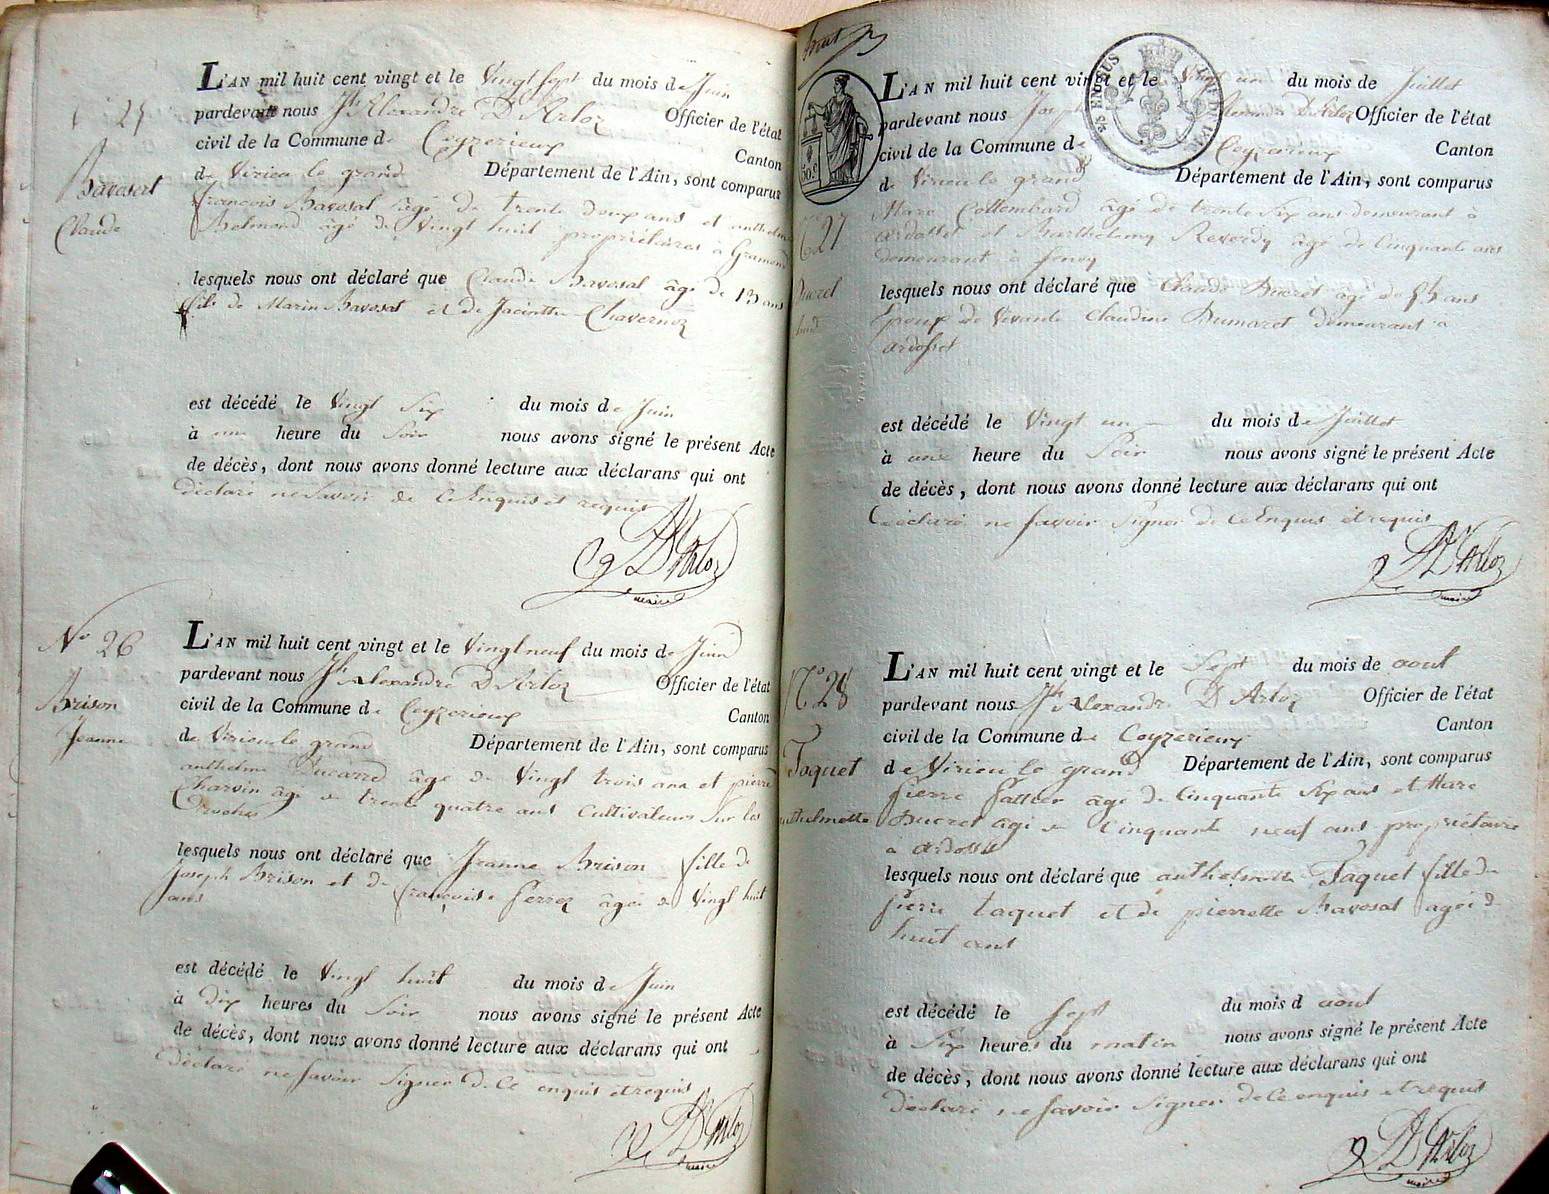 25
Bavosat
Claude
L'AN mil huit cent vingt et le Vingt Sept du mois de Juin
pardevant nous Jh Alexandre D'Arloz Officier de l'état
civil de la Commune de Ceyzerieux Canton
de Virieu le grand Département de l'Ain, sont comparus
françois Bavosat âgé de trente deux ans et anthelme
Belmond âgé de Vingt huit propriétaires à Gramond
lesquels nous ont déclaré que Claude Bavosat âgé de 13 ans
fils de Marin Bavosat et de Jacinthe Chavernoz
est décédé le Vingt Six du mois de Juin
à une heure du Soir nous avons signé le présent Acte
de décès, dont nous avons donné lecture aux déclarans qui ont
déclaré ne Savoir de ce Enquis et requis
D'Arloz
maire
No 26
Brison
Jeanne
L'AN mil huit cent vingt et le Vingt neuf du mois de Juin
pardevant nous Jh Alexandre D'Arloz Officier de l'état
civil de la Commune de Ceyzerieux Canton
de Virieu le grand Département de l'Ain, sont comparus
anthelme Ducarre âgé de Vingt trois ans et pierre
Charvin âgé de trente quatre ans Cultivateurs Sur les
Croches
lesquels nous ont déclaré que Jeanne Brison fille de
Joseph Brison et de françoise Perrez âgée de Vingt huit
ans
est décédé le Vingt huit du mois de Juin
à Dix heures du Soir nous avons signé le présent Acte
de décès, dont nous avons donné lecture aux déclarans qui ont
Déclaré ne Savoir Signer de Ce enquis et requis
D'Arloz
maire
No 27
Ducret
L'AN mil huit cent vingt et le Vingt un du mois de Juillet
pardevant nous D'Arloz Officier de l'état
civil de la Commune de Ceyzerieux Canton
de Virieu le grand Département de l'Ain, sont comparus
Marc Collombard âgé de trente Six ans demeurant à
ardosset et Barthelemy Reverdy âgé de Cinquante ans
demeurant à
lesquels nous ont déclaré que Claude Ducret âgé de ans
Epoux de vivante Claudine Dumarest demeurant a
ardosset
est décédé le Vingt un du mois de Juillet
à une heure du Soir nous avons signé le présent Acte
de décès, dont nous avons donné lecture aux déclarans qui ont
Déclaré ne Savoir Signer de Ce Enquis et requis
D'Arloz
maire
No 28
Taquet
anthelmette
L'AN mil huit cent vingt et le Sept du mois de aout
pardevant nous Jh Alexandre D'Arloz Officier de l'état
civil de la Commune de Ceyzerieux Canton
de Virieu le grand Département de l'Ain, sont comparus
Pierre âgé de Cinquante Six ans et Marc
Ducret âgé de Cinquante neuf ans propriétaire
a ardosset
lesquels nous ont déclaré que anthelmette Taquet fille de
Pierre taquet et de pierrette Bavosat agée de
huit ans
est décédé le Sept du mois d aout
à Six heures du matin nous avons signé le présent Acte
de décès, dont nous avons donné lecture aux déclarans qui ont
Déclaré ne Savoir Signer de Ce enquis et requis
D'Arloz
maire